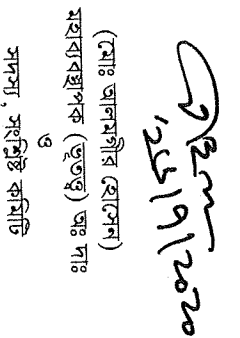 (মোঃ আলমগীর হোসেন)
মহাব্যবস্থাপক (ভূতত্ত্ব) অঃ দাঃ
ও
সদস্য, সংশ্লিষ্ট কমিটি